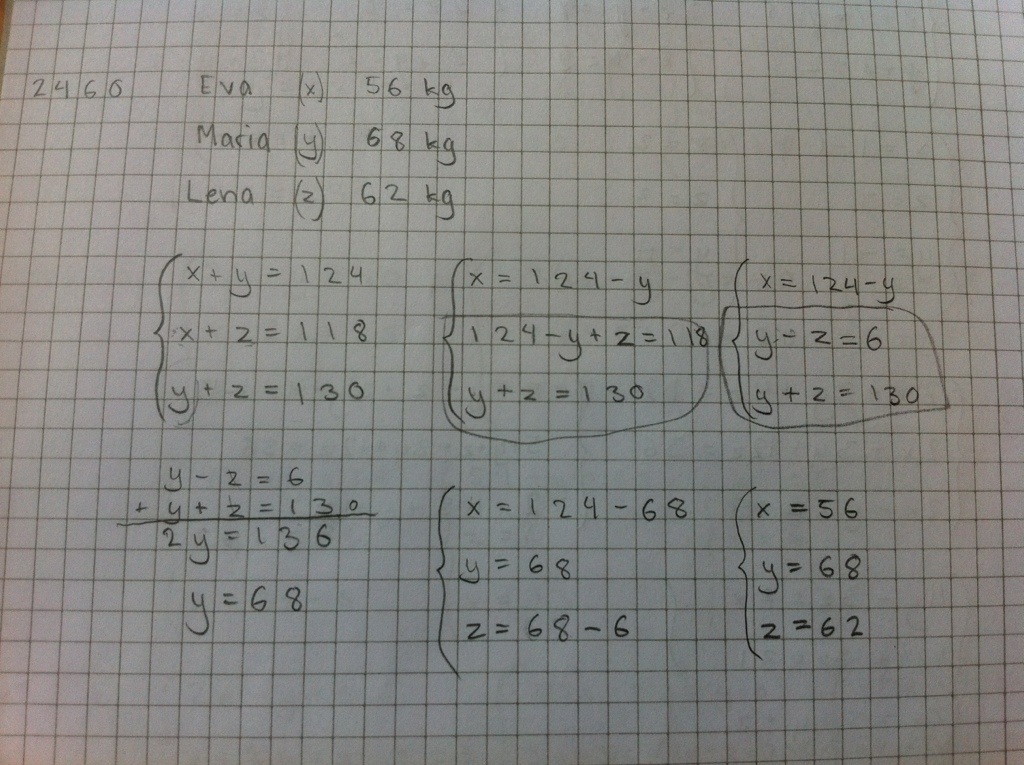 2460 Eva (x) 56 kg
Maria (y) 68 kg
Lena (z) 62 kg
x + y = 124
x + z = 118
y + z = 130
x = 124 - y
124 - y + z = 118
y + z = 130
x = 124 - y
y - z = 6
y + z = 130
y - z = 6
+ y + z = 130
2y = 136
y = 68
x = 124 - 68
y = 68
z = 68 - 6
x = 56
y = 68
z = 62